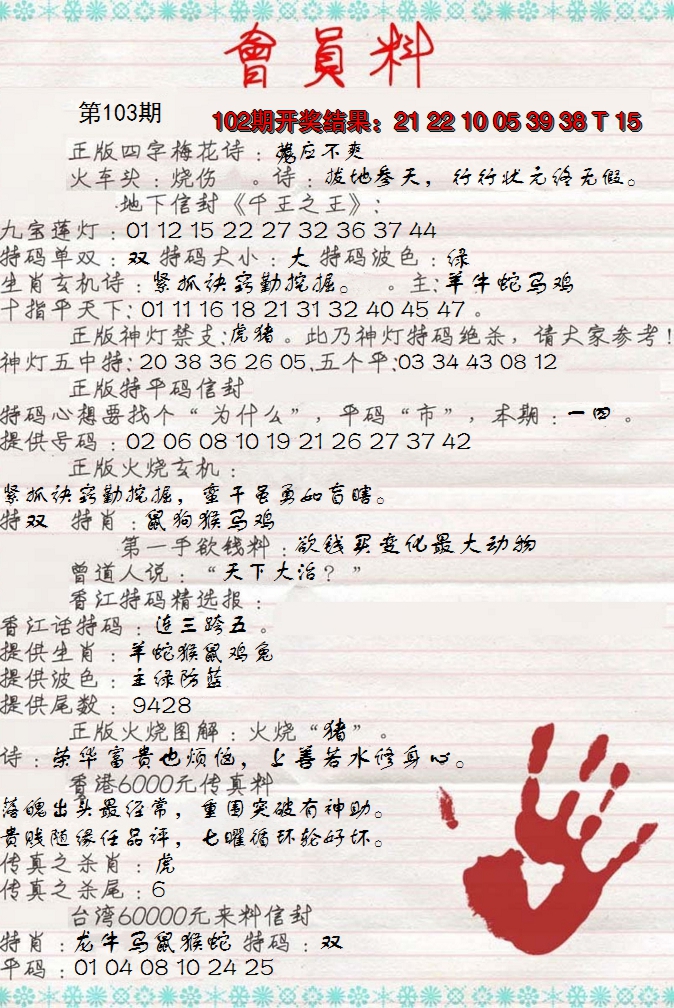 會員料
第103期
102期开奖结果：21 22 10 05 39 38 T 15
正版四字梅花诗：屡应不爽
火车头：烧伤 。诗：拔地参天，行行状元终无假。
地下信封《千王之王》：
九宝莲灯：01 12 15 22 27 32 36 37 44
特码单双：双 特码大小：大 特码波色：绿
生肖玄机诗：紧抓诀窍勤挖掘。 。主:羊牛蛇马鸡
十指平天下: 01 11 16 18 21 31 32 40 45 47 。
正版神灯禁支:虎猪。此乃神灯特码绝杀，请大家参考!
神灯五中特: 20 38 36 26 05.五个平:03 34 43 08 12
正版特平码信封
特码心想要找个“为什么”，平码“市”，本期：一四 。
提供号码：02 06 08 10 19 21 26 27 37 42
正版火烧玄机：
紧抓诀窍勤挖掘，蛮干虽勇如盲瞎。
特双 特肖：鼠狗猴马鸡
第一手欲钱料：欲钱买变化最大动物
曾道人说：“天下大治？”
香江特码精选报：
香江话特码：近三跨五 。
提供生肖：羊蛇猴鼠鸡兔
提供波色：主绿防蓝
提供尾数：9428
正版火烧图解：火烧“猪”。
诗：荣华富贵也烦恼，上善若水修身心。
香港6000元传真料
落魄出头最经常，重围突破有神助。
贵贱随缘任品评，七曜循环轮好坏。
传真之杀肖：虎
传真之杀尾：6
台湾60000元来料信封
特肖：龙牛马鼠猴蛇 特码：双
平码：01 04 08 10 24 25